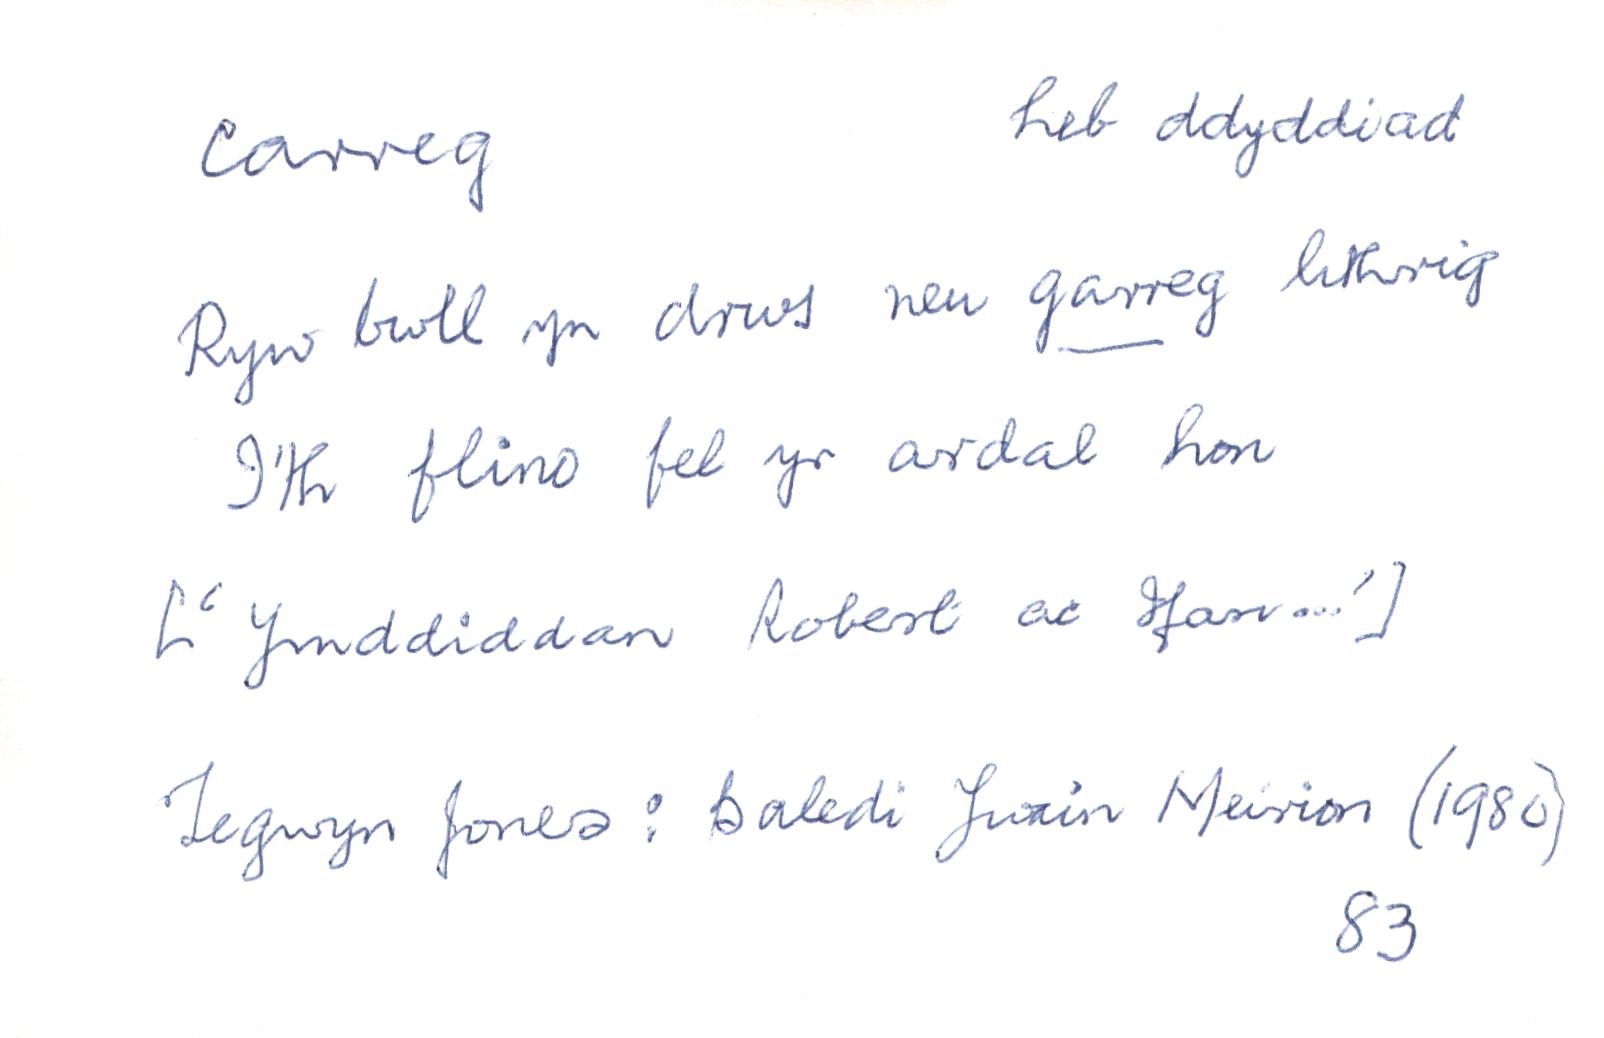 carreg
heb ddyddiad
Ryw bwll yn drws neu garreg lithrig
I'th flino fel yr ardal hon
[‘Ymddiddan Robert ac Ifan...’]
Tegwyn Jones: Baledi Ywain Meirion (1980)
83